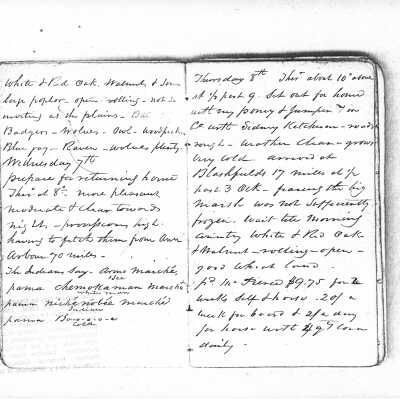 White & Red Oak, Walnut & Some
large poplar - open - rolling - not so
inviting as the plains -
Badgers - Wolves - Owl - woodpeckers
Blue jay - Raven - wolves plenty.
Wednesday 7th
prepare for returning home
This at 8º. more pleasant
moderate & clear towards
night - provisions high.
having to fetch them from Ann
Arbour 70 miles -
The Indians say. Arme Marchée
Bee
pama chemokaman Marchée
white man
pama nichenobie marchée
Indian
pama Boo-o-o-o
Cold
Thursday 8th This about 10º above
at ½ past 9. Set out for home
with my poney & Jumper in
Co with Sidney Ketchum - roads
rough - weather clear - grows
very cold arrived at
Blashfields 17 miles at ½
past 3 Ock - fearing the big
Marsh was not sufficiently
frozen. Wait till Morning
country White & Red Oak
& Walnut - rolling - open -
good wheat land -
pd Mr $9.75 for
week self & horse. 20/ a
week for board & 2/ a day
for horse with 4 qts corn
daily -